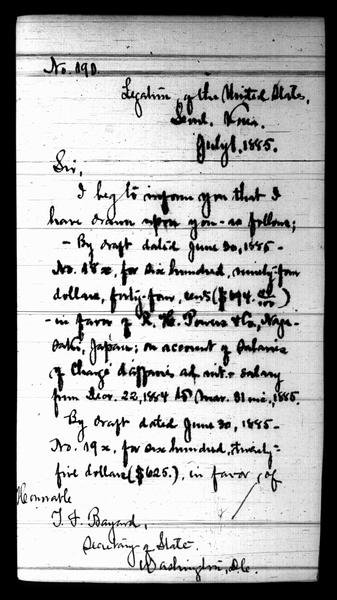 No. 190.
Legation of the United States,
Seoul, Korea.
July 1, 1885.
Sir,
I beg to inform you that I
have drawn upon you - as follows;
- By draft dated June 30, 1885 -
No. 18x. for six hundred, ninety-four
dollars, forty-four, cents ($694.44/100)
- in favor of R. H. Powers & Co, Naga-
saki, Japan; on account of Salaries
of Chargé d'affaires ad. int. - salary
from Decr. 22, 1884 to Mar. 31 inc., 1885.
By draft dated June 30, 1885 -
No. 19x. for six hundred, twenty-
five dollars ($625.), in favor of
Honorable
T. F. Bayard,
Secretary of State.
Washington, D.C.